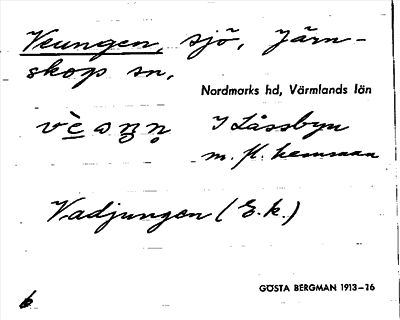 Veungen, sjö, Järn-
skop sn,
Nordmarks hd, Värmlands län
I Låssbyn
m. fl. hemman
Vadjungen (E.k.)
GÖSTA BERGMAN 1913–16